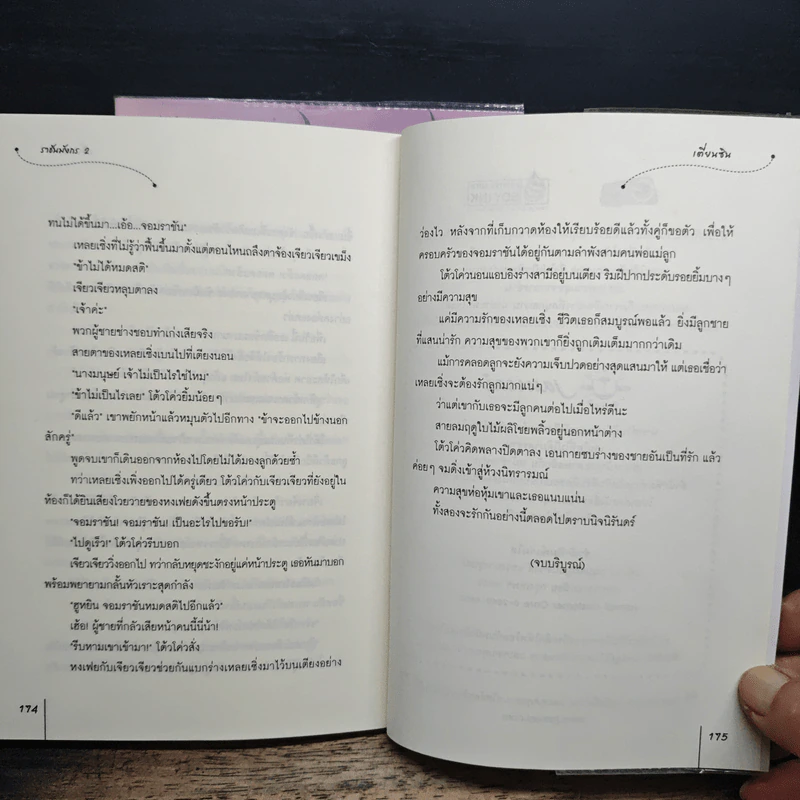 ราชันมังกร 2
ทนไม่ได้ขึ้นมา...เอ้อ...จอมราชัน"
เหลยเซิ่งที่ไม่รู้ว่าฟื้นขึ้นมาตั้งแต่ตอนไหนถลึงตาจ้องเจียวเจียวเขม็ง
"ข้าไม่ได้หมดสติ"
เจียวเจียวหลุบตาลง
"เจ้าค่ะ"
พวกผู้ชายช่างชอบทำเก่งเสียจริง
สายตาของเหลยเซิ่งเบนไปที่เตียงนอน
"นางมนุษย์ เจ้าไม่เป็นไรใช่ไหม"
"ข้าไม่เป็นไรเลย" โต้วโค่วยิ้มน้อยๆ
"ดีแล้ว" เขาพยักหน้าแล้วหมุนตัวไปอีกทาง "ข้าจะออกไปข้างนอก
สักครู่"
พูดจบเขาก็เดินออกจากห้องไปโดยไม่ได้มองลูกด้วยซ้ำ
ทว่าเหลยเซิ่งเพิ่งออกไปได้ครู่เดียว โต้วโค่วกับเจียวเจียวที่ยังอยู่ใน
ห้องก็ได้ยินเสียงโวยวายของหงเฟยดังขึ้นตรงหน้าประตู
"จอมราชัน! จอมราชัน! เป็นอะไรไปขอรับ!"
"ไปดูเร็ว!" โต้วโค่วรีบบอก
เจียวเจียววิ่งออกไป ทว่ากลับหยุดชะงักอยู่แค่หน้าประตู เธอหันมาบอก
พร้อมพยายามกลั้นหัวเราะสุดกำลัง
"ฮูหยิน จอมราชันหมดสติไปอีกแล้ว"
เฮ้อ! ผู้ชายที่กลัวเสียหน้าคนนี้นี่น้า!
"รีบหามเขาเข้ามา!" โต้วโค่วสั่ง
หงเฟยกับเจียวเจียวช่วยกันแบกร่างเหลยเซิ่งมาไว้บนเตียงอย่าง
174
เตี่ยนซิน
ว่องไว หลังจากที่เก็บกวาดห้องให้เรียบร้อยดีแล้วทั้งคู่ก็ขอตัว เพื่อให้
ครอบครัวของจอมราชันได้อยู่กันตามลำพังสามคนพ่อแม่ลูก
โต้วโค่วนอนแอบอิงร่างสามีอยู่บนเตียง ริมฝีปากประดับรอยยิ้มบางๆ
อย่างมีความสุข
แค่มีความรักของเหลยเซิ่ง ชีวิตเธอก็สมบูรณ์พอแล้ว ยิ่งมีลูกชาย
ที่แสนน่ารัก ความสุขของพวกเขาก็ยิ่งถูกเติมเต็มมากกว่าเดิม
แม้การคลอดลูกจะยังความเจ็บปวดอย่างสุดแสนมาให้ แต่เธอเชื่อว่า
เหลยเซิ่งจะต้องรักลูกมากแน่ๆ
ว่าแต่เขากับเธอจะมีลูกคนต่อไปเมื่อไหร่ดีนะ
สายลมฤดูใบไม้ผลิโชยพลิ้วอยู่นอกหน้าต่าง
โต้วโค่วคิดพลางปิดตาลง เอนกายซบร่างของชายอันเป็นที่รัก แล้ว
ค่อยๆ จมดิ่งเข้าสู่ห้วงนิทรารมณ์
ความสุขห่อหุ้มเขาและเธอแนบแน่น
ทั้งสองจะรักกันอย่างนี้ตลอดไปตราบนิจนิรันดร์
(จบบริบูรณ์)
175